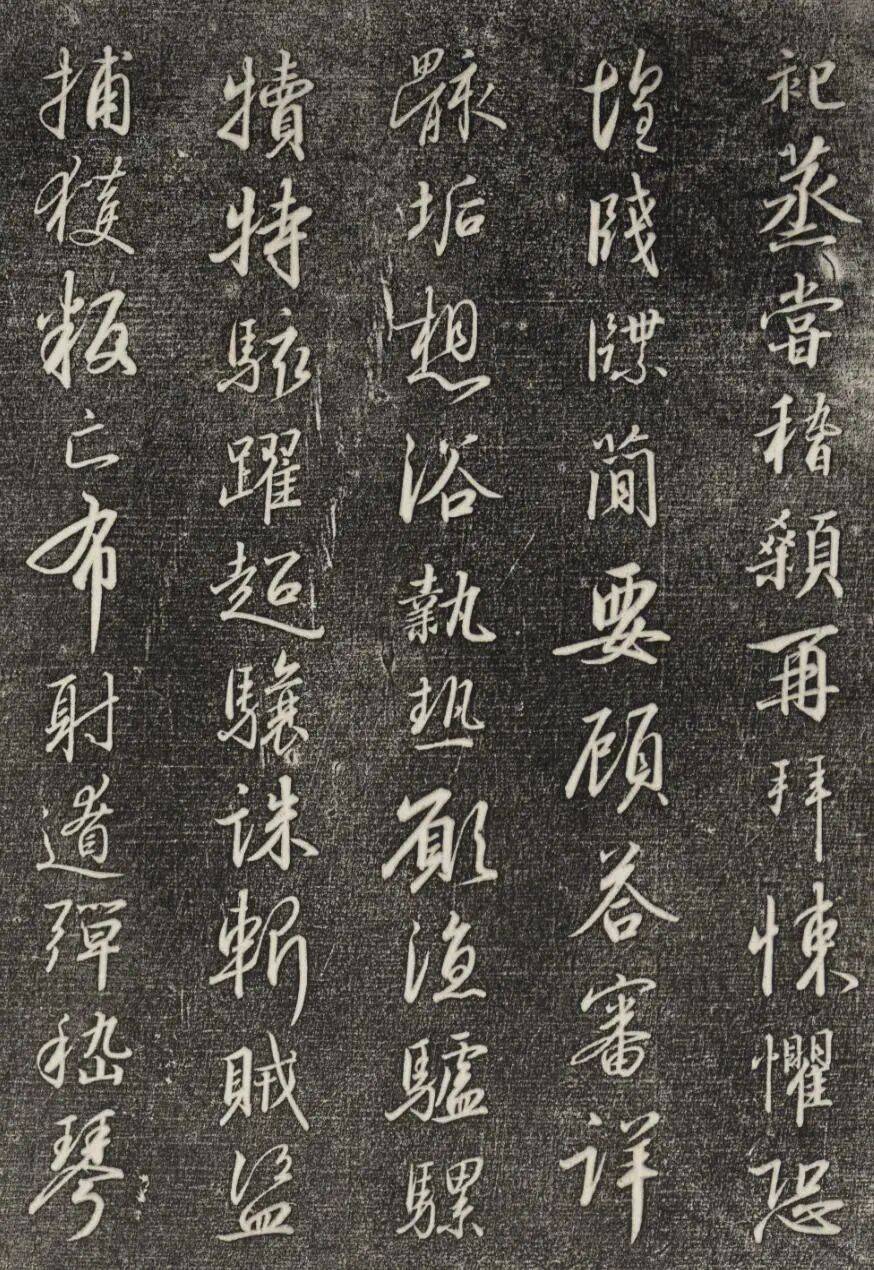 祀蒸嘗稽顙再拜悚懼恐
惶牋牒簡要顧答審詳
骸垢想浴執熱願涼驢騾
犢特駭躍超驤誅斬賊盜
捕獲叛亡布射遼彈嵇琴